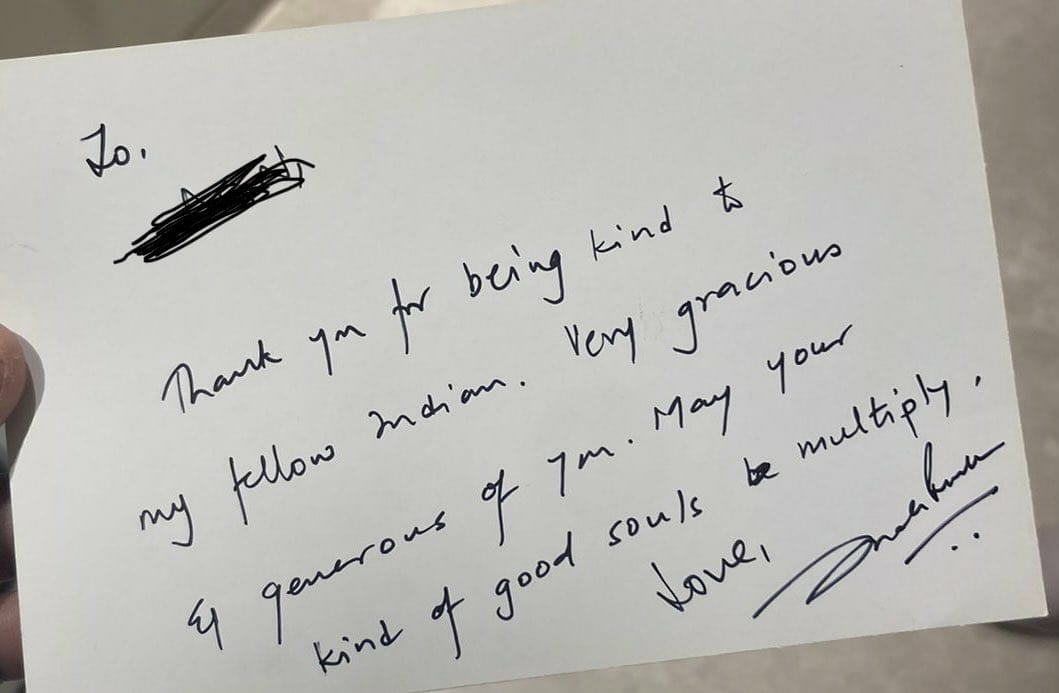 To.
Thank you for being kind to
my fellow Indian. Very gracious
& generous of you. May your
kind of good souls be multiply.
Love,